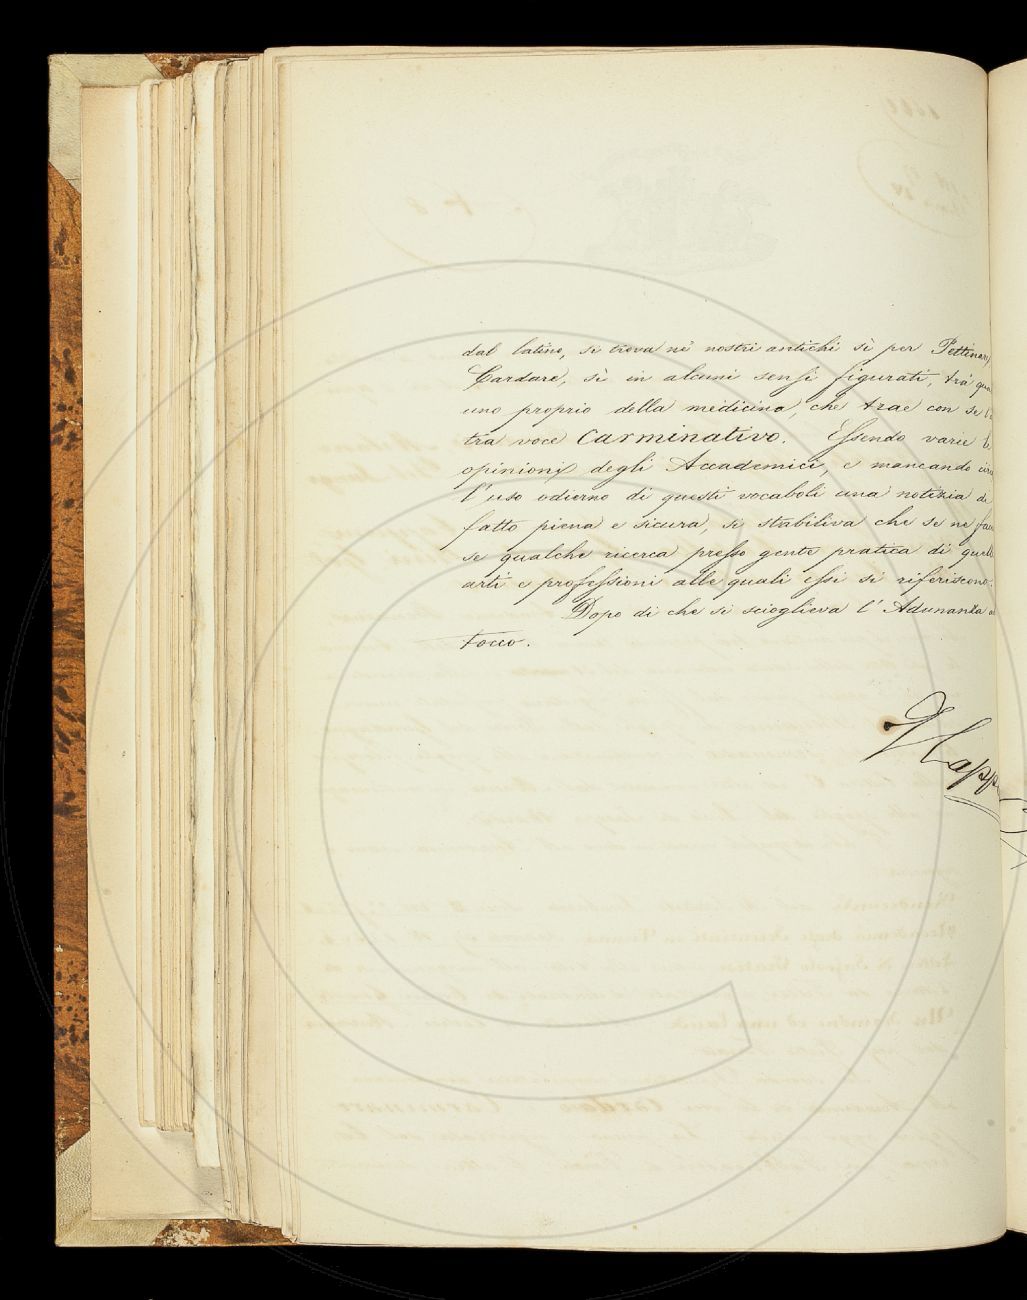 dal latino, si trova ne' nostri antichi sì per Pettinare,
Cardare, sì in alcuni sensi figurati, tra'
uno proprio della medicina, che trae con se
tra voce Carminativo. Essendo varie le
opinioni degli Accademici, e mancando
l'uso odierno di questi vocaboli una notizia di
fatto piena e sicura, si stabiliva che se ne
se qualche ricerca presso gente pratica di
arti e professioni alle quali essi si riferiscono.
Dopo di che si scioglieva l'Adunanza
tocco.